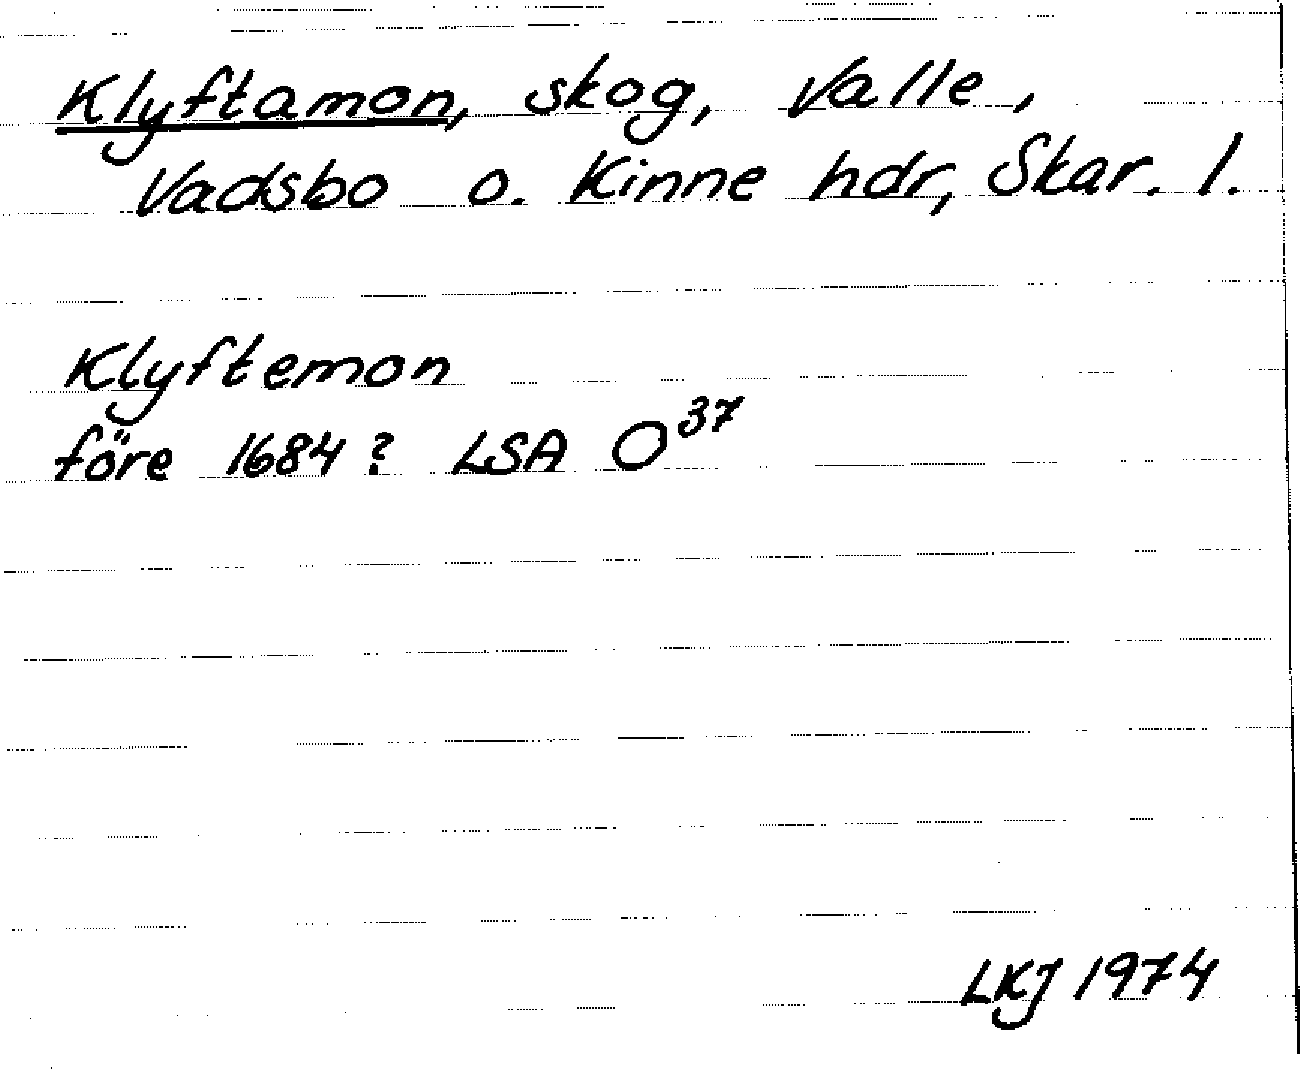 Klyftamon, skog, Valle,
Vadsbo o. Kinne hdr, Skar. l.
Klyftemon
före 1684? LSA O37
LKJ 1974